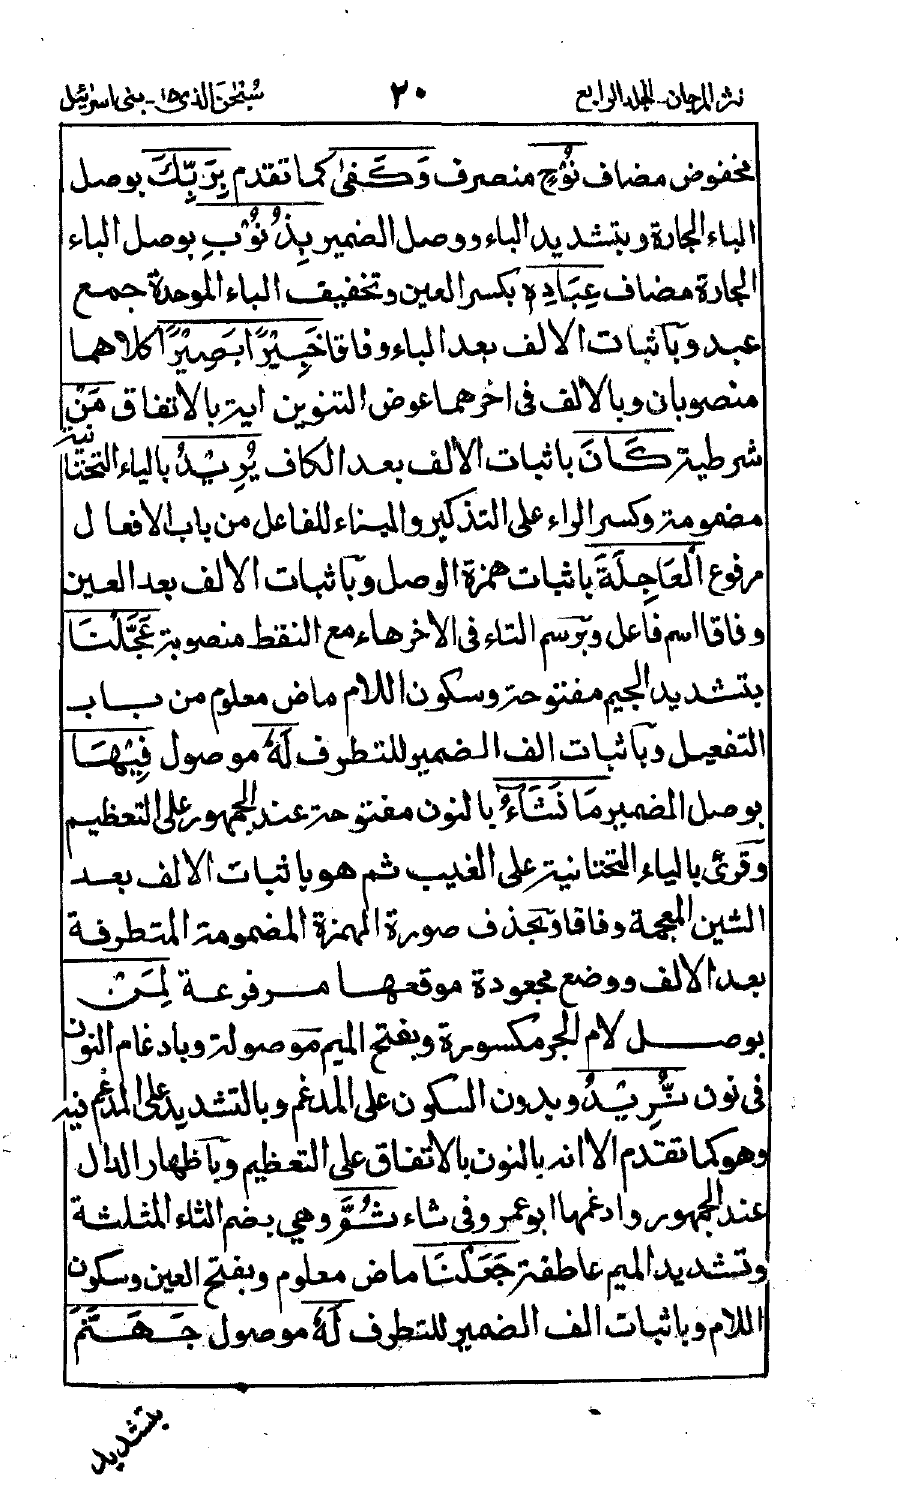 نثر المرجان - المجلد الرابع ٢٠ سبحن الذی ١٥ - بنی اسرائیل
مخفوض مضاف نُوْحٍ منصرف وَكَفىٰ كما تقدم بِرَبِّكَ بوصل
الباء الجارة وبتشديد الباء ووصل الضمير بِذُنُوْبِ بوصل الباء
الجارة مضاف عِبَادِهٖ بكسر العين وتخفيف الباء الموحدة جمع
عبد وباثبات الالف بعد الباء وفاقا خَبِيْرًا بَصِيْرًا كلاهما
منصوبان وبالالف فى اخرهما عوض التنوين اية بالاتفاق مَنْ
شرطية كَانَ باثبات الالف بعد الكاف يُرِيْدُ بالياء التحتانية
مضمومة وكسر الراء على التذكير والبناء للفاعل من باب الافعال
مرفوع الْعَاجِلَةَ باثبات همزة الوصل وباثبات الالف بعد العين
وفاقا اسم فاعل وبرسم التاء فى الاخر هاء مع النقط منصوبة عَجَّلْنَا
بتشديد الجيم مفتوحة وسكون اللام ماض معلوم من باب
التفعيل وباثبات الف الضمير للتطرف لَهٗ موصول فِيْهَا
بوصل الضمير مَا نَشَآءُ بالنون مفتوحة عند الجمهور على التعظيم
وقرئ بالياء التحتانية على الغيب ثم هو باثبات الالف بعد
الشين المعجمة وفاقا وبحذف صورة الهمزة المضمومة المتطرفة
بعد الالف ووضع مجعودة موقعها مرفوعة لِمَنْ
بوصل لام الجر مكسورة وبفتح الميم موصولة وبادغام النون
فى نون نُّرِيْدُ وبدون السكون على المدغم وبالتشديد على المدغم فيه
وهو كما تقدم الا انه بالنون بالاتفاق على التعظيم وباظهار الدال
عند الجمهور وادغمها ابو عمرو فى ثاء ثُمَّ وهي بضم الثاء المثلثة
وتشديد الميم عاطفة جَعَلْنَا ماض معلوم وبفتح العين وسكون
اللام وباثبات الف الضمير للتطرف لَهٗ موصول جَهَنَّمَ
بتشديد